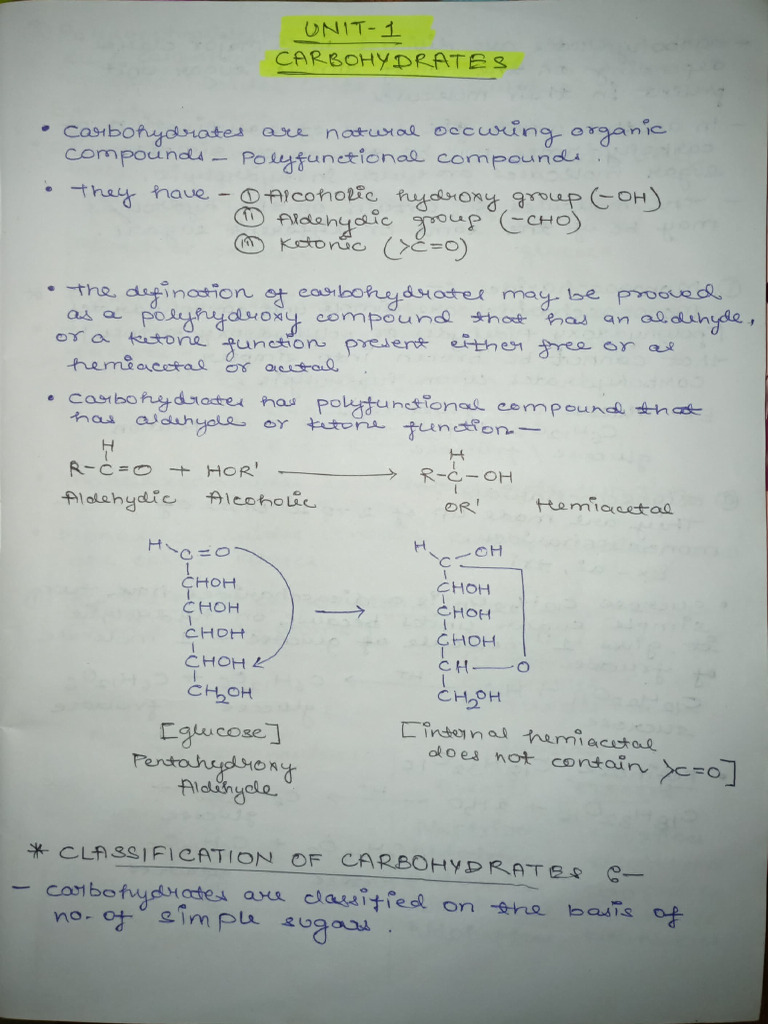 UNIT-1
CARBOHYDRATES
• Carbohydrates are natural occuring organic
compounds - Polyfunctional compounds.
• They have - (i) Alcoholic hydroxy group (-OH)
(ii) Aldehydic group (-CHO)
(iii) Ketonic (>C=O)
• The defination of carbohydrates may be prooved
as a polyhydroxy compound that has an aldehyde,
or a ketone function present either free or as
hemiacetal or acetal.
• Carbohydrates has polyfunctional compound that
has aldehyde or ketone function -
H H
R-C=O + HOR' → R-C-OH
Aldehydic Alcoholic OR' Hemiacetal
H C=O H C-OH
CHOH CHOH
CHOH CHOH
CHOH CHOH
CHOH CH-O
CH2OH CH2OH
[glucose] [internal hemiacetal
Pentahydroxy does not contain >C=O]
Aldehyde
* CLASSIFICATION OF CARBOHYDRATES :-
- Carbohydrates are classified on the basis of
no. of simple sugars.